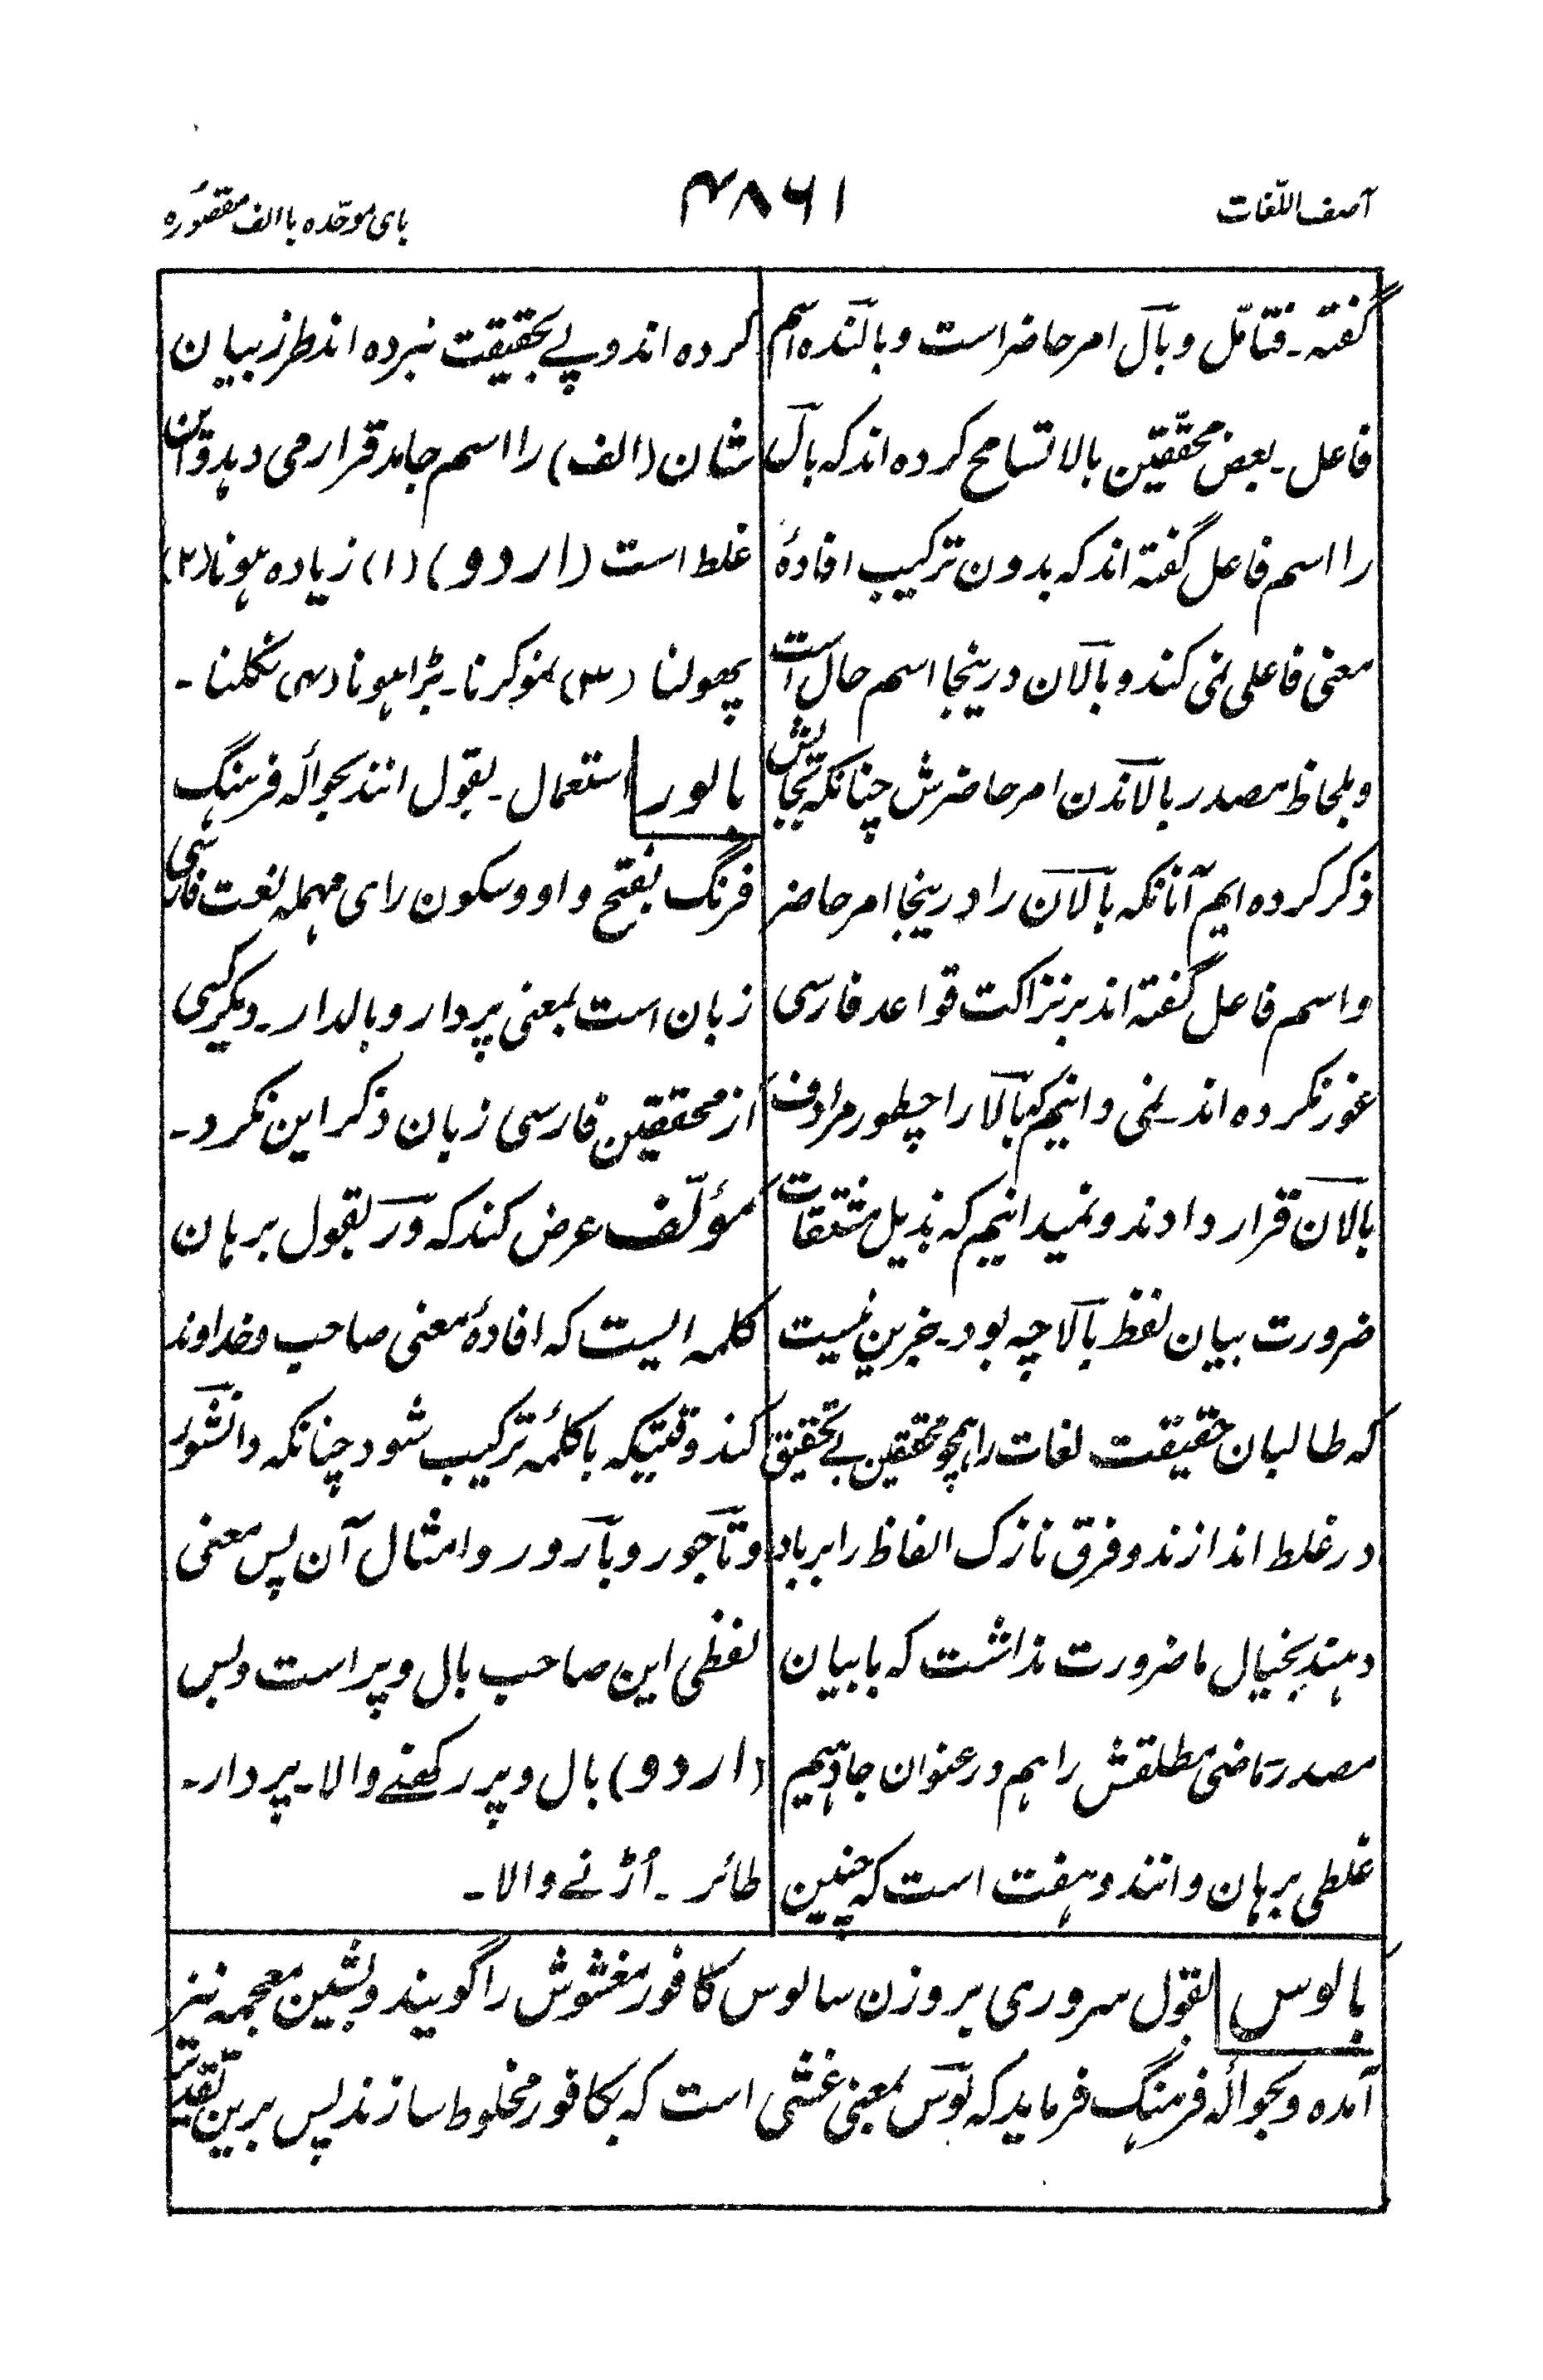 آصف اللّغات
۴۸۶۱
بای موحّده باالف مقصوره
گفته۔ فتامّل و بال امر حاضر است و بالنده اسم
فاعل۔ بعض محقّقین بالا تسامح کرده اند که بال
را اسم فاعل گفته اند که بدون ترکیب افادۀ
معنی فاعلی نمی کند و بالان درینجا اسم حال است
و بلحاظ مصدر بالاندن امر حاضرش چنانکه بجایش
ذکر کرده ایم آنانکه بالان را درینجا امر حاضر
و اسم فاعل گفته اند بر نزاکت قواعد فارسی
غور نکرده اند۔ نمی دانیم که بالا را چطور مرادف
بالان قرار دادند و نمیدانیم که بذیل مشتقات
ضرورت بیان لفظ بالا چه بود۔ جزین نیست
که طالبان حقیقت لغات را همچو محققین بے تحقیق
در غلط اندازند و فرق نازک الفاظ را برباد
دهند بخیال ما ضرورت نداشت که با بیان
مصدر ماضی مطلقش را هم در عنوان جا دهیم
غلطی برهان و انند و هفت است که چنین
کرده اند و پے بحقیقت نبرده اند طرز بیان
شان (الف) را اسم جامد قرار می دهد و این
غلط است (اردو) (۱) زیاده ہونا (۲)
پھولنا (۳) نمو کرنا۔ بڑا ہونا (۴) نکلنا۔
بالور استعمال۔ بقول انند بحوالۂ فرہنگ
فرنگ بفتح واو و سکون رای مهمله لغت فارسی
زبان است بمعنی پردار و بالدار۔ دیگر کسی
از محققین فارسی زبان ذکر این نکرد۔
مؤلّف عرض کند که ور بقول برهان
کلمه ایست که افادۀ معنی صاحب و خداوند
کند وقتیکه با کلمۂ ترکیب شود چنانکه دانشور
و تاجور و بارور و امثال آن پس معنی
لفظی این صاحب بال و پر است و بس
(اردو) بال و پر رکھنے والا۔ پردار۔
طائر۔ اُڑنے والا۔
بالوس بقول سروری بروزن سالوس کافور مغشوش را گویند و بشین معجمه نیز
آمده و بحوالۂ فرہنگ فرماید که لوس بمعنی غشی است که بکافور مخلوط سازند پس برین تقدیر